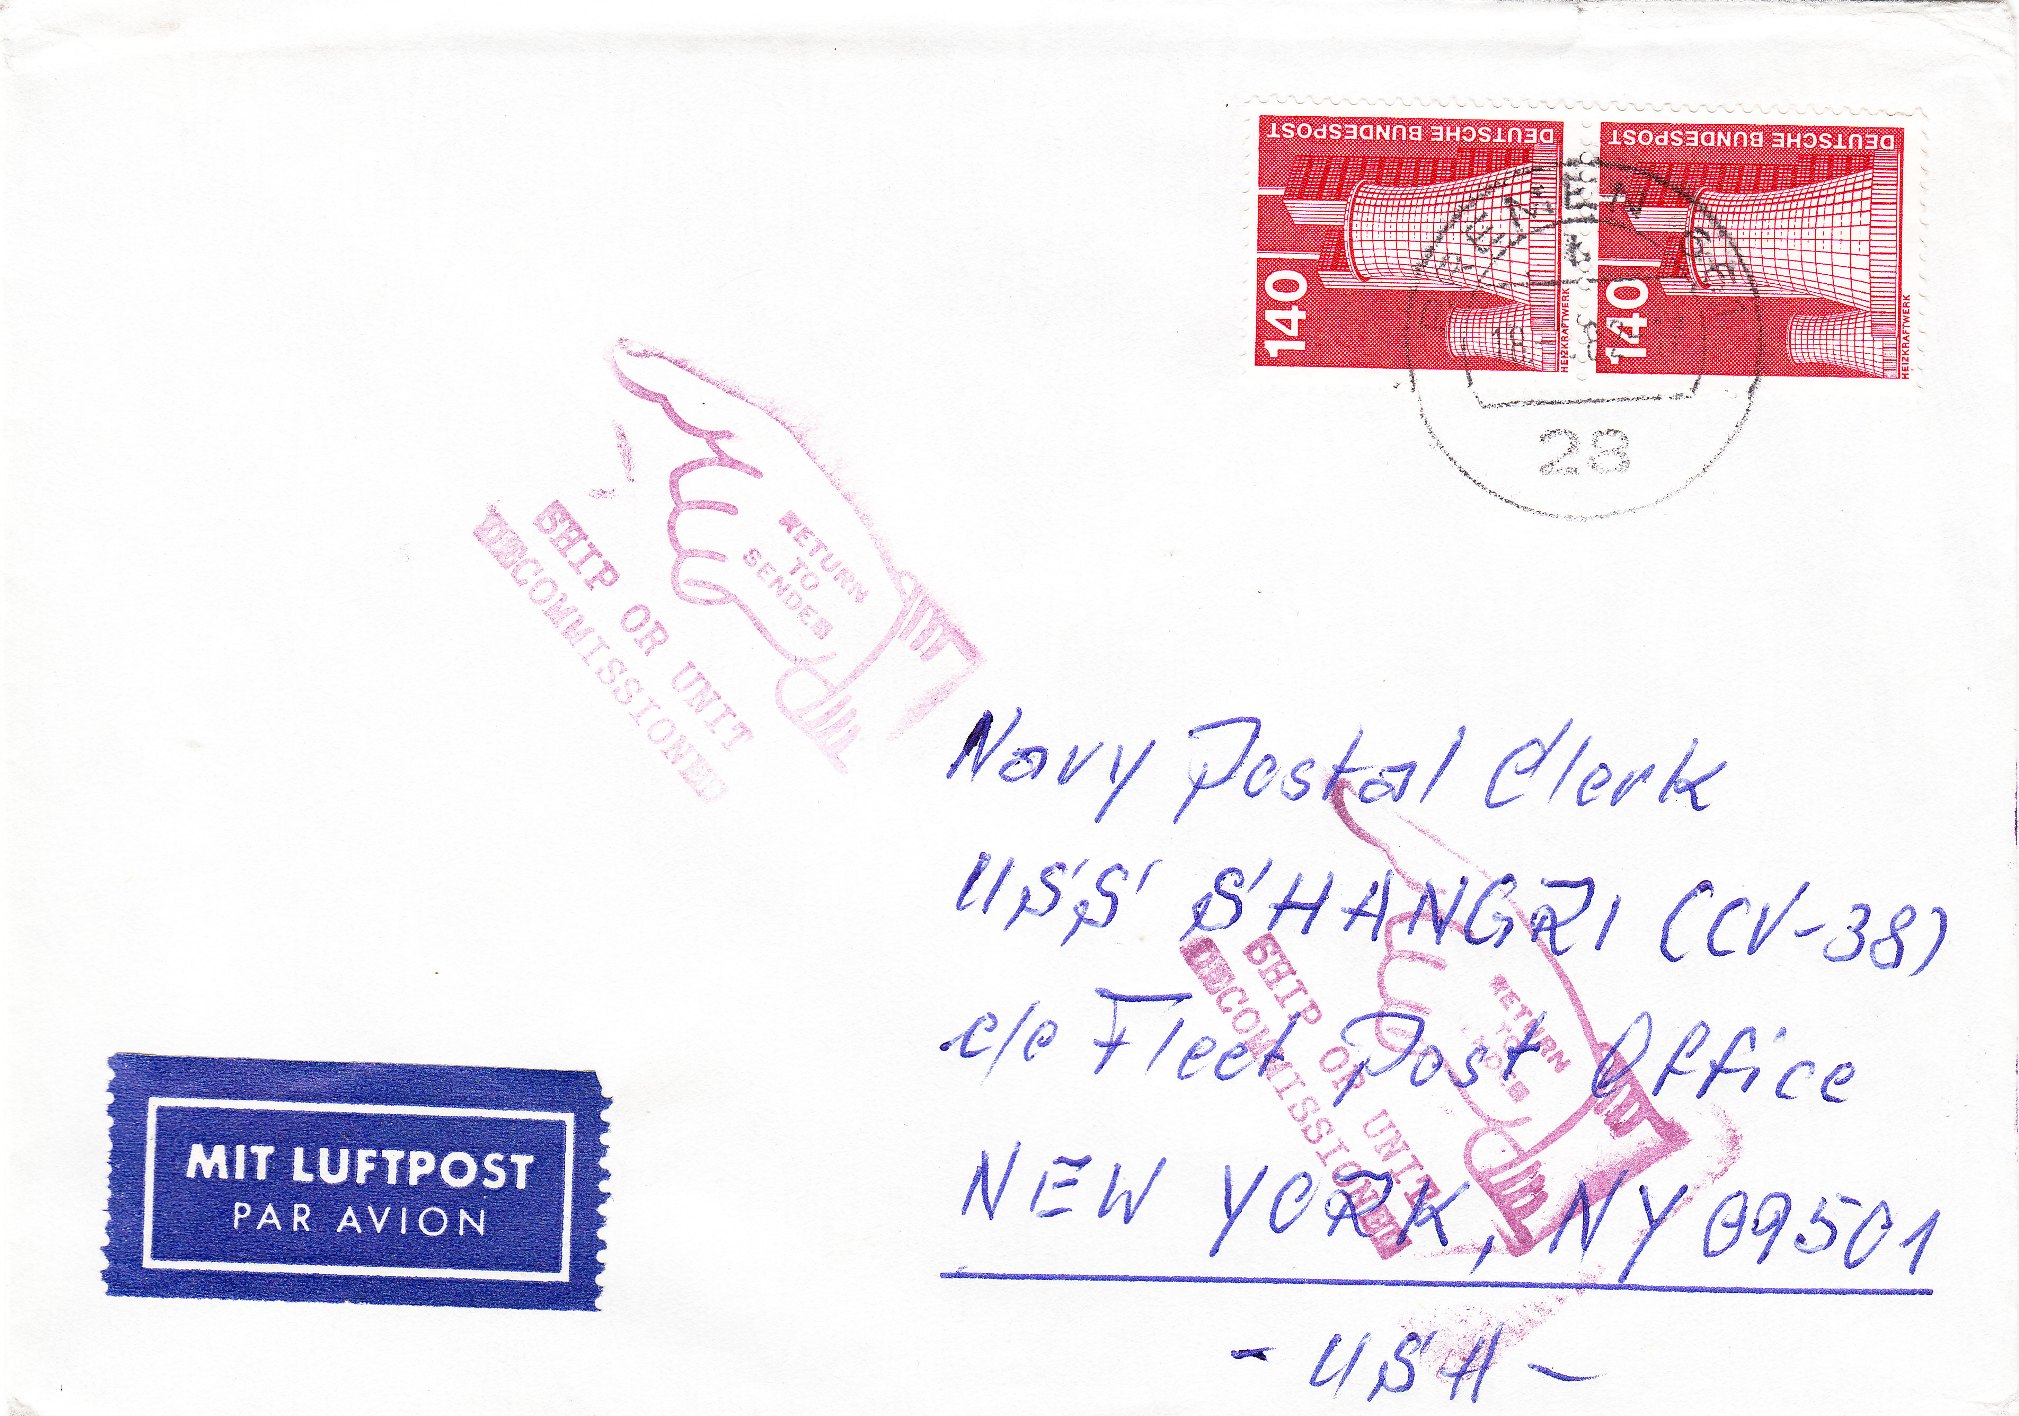 DEUTSCHE BUNDESPOST
140
HEIZKRAFTWERK
DEUTSCHE BUNDESPOST
140
HEIZKRAFTWERK
28
RETURN
TO
SENDER
SHIP OR UNIT
DECOMMISSIONED
Navy Postal Clerk
USS SHANGRI (CV-38)
c/o Fleet Post Office
NEW YORK, NY 09501
- USA -
RETURN
TO
SHIP OR UNIT
DECOMMISSIONED
MIT LUFTPOST
PAR AVION